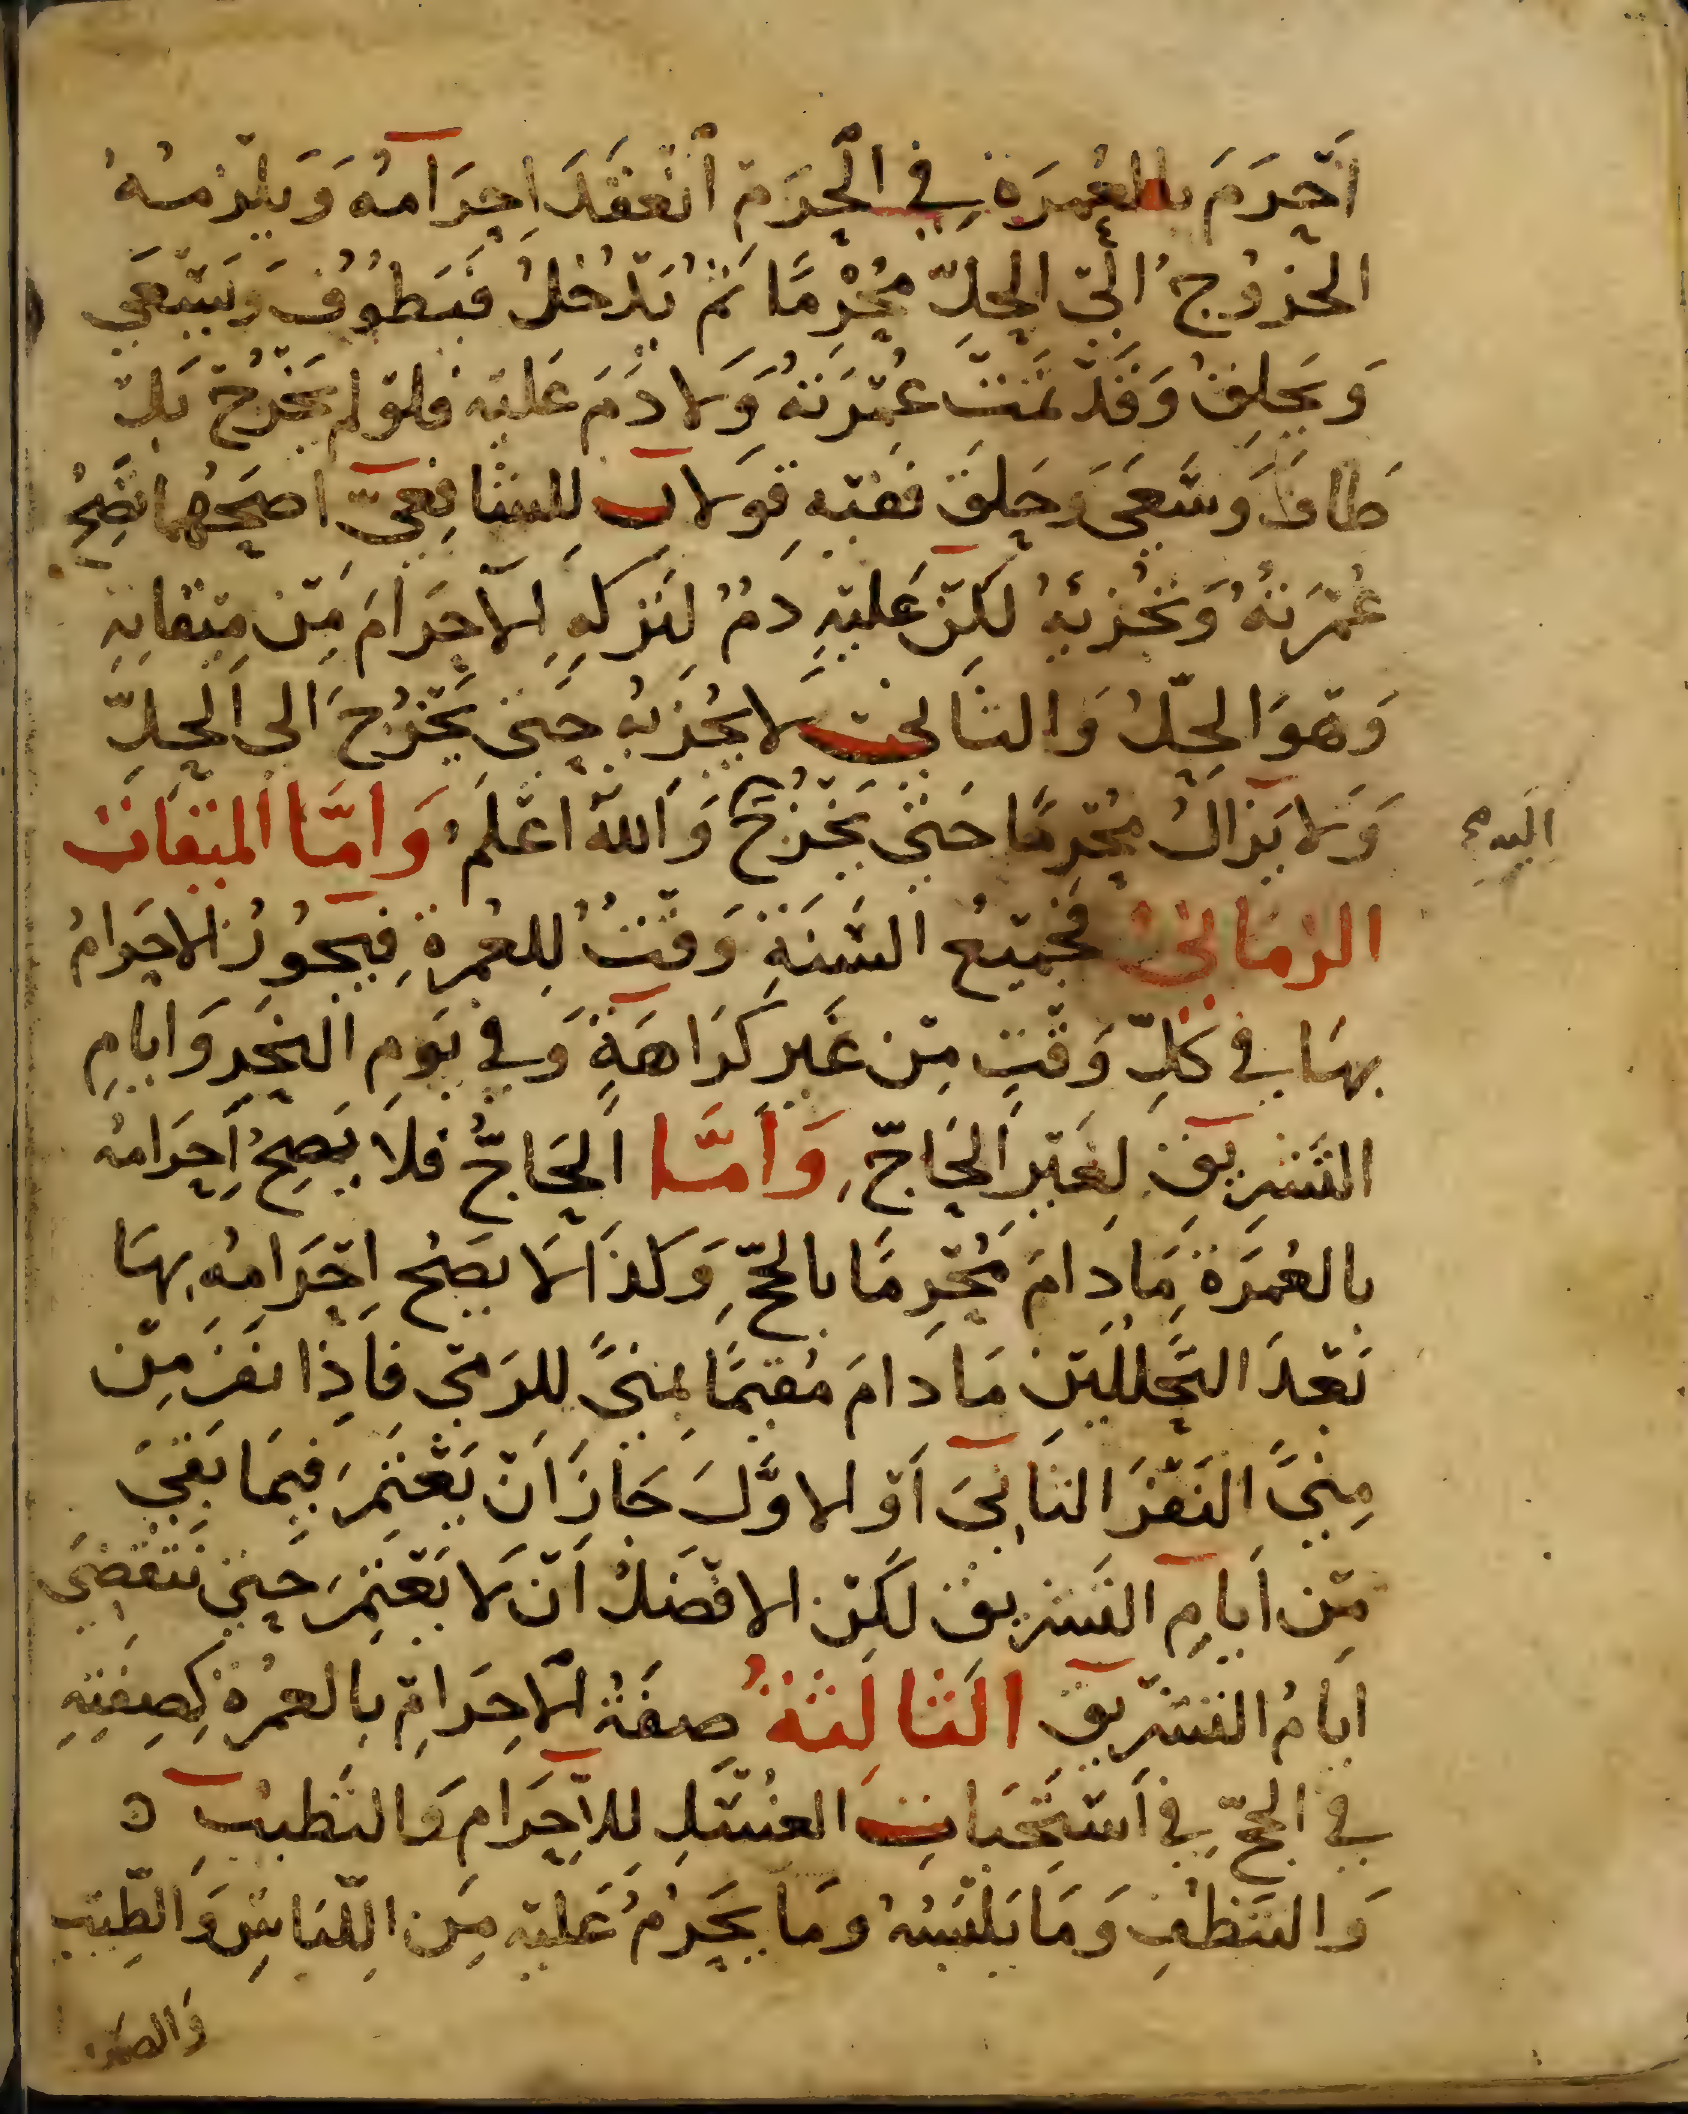 أَحْرَمَ بالعُمرَة فِي الْحَرَم انْعَقَدَ اِحِرَامُهُ وَيَلْزمُهُ
الخروُجُ الَى الحِلّ مُحْرِمًا ثُمَّ يَدْخُلُ فيَطُوُفُ وَيَسْعَى
وَيَحلِقُ وَقَدْ تمَّتْ عُمْرَتهُ وَلا دَمَ عَليْه فلوْ لم يَخْرُجْ بَلْ
طَافَ وَسَعَى وَحَلَقَ ففيْه قولان للشافِعِيّ اصَحُّهما تصِحُّ
عُمْرَتهُ وَتُجْزئهُ لكِنْ عَليْهِ دمٌ لِتَركِهِ الاحِرَامَ مِنْ مِيْقاتِهِ
وَهْوَ الحِلُّ وَالثانِي لا يُجْزئه حَتى يَخْرُجَ الى الحِلِّ
وَلا يَزَالُ مُحْرِمًا حَتى يَخْرُجَ وَاللهُ اعْلَمُ وَأمَّا المِيْقاتُ
الزمَانىُ فجَمِيْعُ السَّنَةِ وَقْتٌ لِلعُمرةِ فيَجُوزُ الاحرَامُ
بهَا في كلِّ وَقْتٍ مِنْ غَير كَرَاهَةٍ وَفي يَوم النَحَرِ وَايامِ
التَّشِريْقِ لِغَيْرِ الحَاجّ وَأمَّا الحَاجُّ فلاَ يَصِحُّ اِحِرَامُه
بالعُمرَة مَا دامَ مُحْرِمًا بالحجِّ وَكذا لَا يصَحُ اِحْرَامُه بهَا
بَعْدَ التَّحَللَيْنِ مَا دامَ مُقيمًا بمِنىً للرَمْي فاِذا نفَرَ مِنْ
مِنىً النَفْرَ الثاَنِىَ أوْ الاوَّلَ جَازَ أنْ يَعْتَمِرَ فيمَا بَقِيَ
مِنْ أيامِ التَشريق لكَنْ الافْضَلُ أنْ لَا يَعْتَمِرَ حَتى تَنْقضِيَ
ايامُ التشْرِيق الثالِثَةُ صِفَةُ الاحِرَامْ بالعمُرة كَصِفتِهِ
في الحجّ في أسْتِحْبَابِ الغُسْلِ للاِحِرَام وَالتَطيبُ ٥
وَالتَنَظفِ وَمَا يَلبَسُهُ ومَا يَحرُمُ عَليْه مِن اللّبَاسِ وَالطّيْب
وَالصَّيد